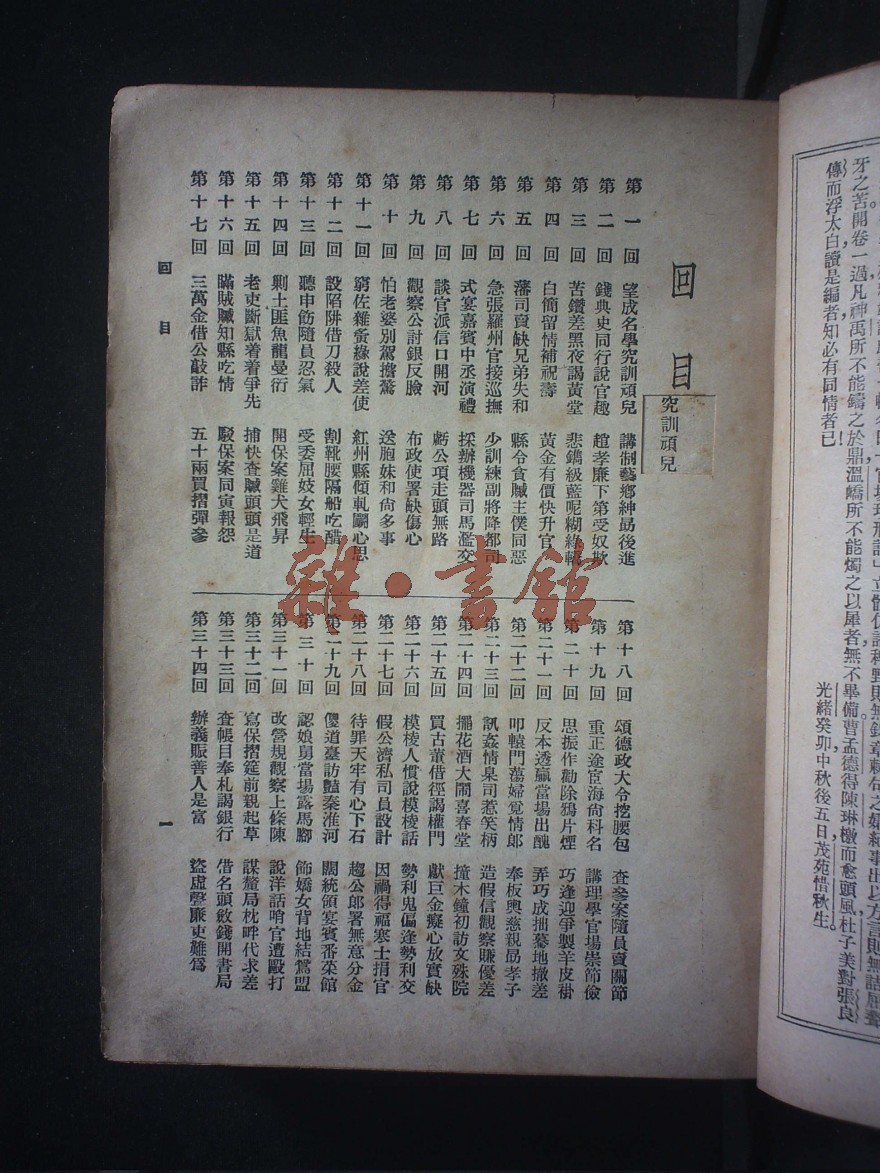 傳而浮太白讀是編者知必有同情者已
光緒癸卯中秋後五日茂苑惜秋生
回目
究訓頑兒
第一回 望成名學究訓頑兒 講制藝鄉紳勗後進
第二回 錢典史同行說官趣 趙孝廉下第受奴欺
第三回 苦鑽差黑夜謁黃堂 悲鐫級藍呢糊綠轎
第四回 白簡留情補祝壽 黃金有價快升官
第五回 藩司賣缺兄弟失和 縣令貪贓主僕同惡
第六回 急張羅州官接巡撫 少訓練副將降都司
第七回 式宴嘉賓中丞演禮 採辦機器司馬濫交
第八回 談官派信口開河 虧公項走頭無路
第九回 觀察公討銀反臉 布政使署缺傷心
第十回 怕老婆別駕擔驚 送胞妹和尙多事
第十一回 窮佐雜夤緣說差使 紅州縣傾軋鬭心思
第十二回 設陷阱借刀殺人 割靴腰隔船吃醋
第十三回 聽申飭隨員忍氣 受委屈妓女輕生
第十四回 剿土匪魚龍曼衍 開保案雞犬飛昇
第十五回 老吏斷獄着着爭先 捕快查贓頭頭是道
第十六回 瞞賊贓知縣吃情 駁保案同寅報怨
第十七回 三萬金借公敲詐 五十兩買摺彈參
第十八回 頌德政大令挖腰包 查參案隨員賣關節
第十九回 重正途宦海尙科名 講理學官場崇節儉
第二十回 思振作勸除鴉片煙 巧逢迎爭製羊皮褂
第二十一回 反本透贏當場出醜 弄巧成拙驀地撤差
第二十二回 叩轅門蕩婦覓情郎 奉板輿慈親勗孝子
第二十三回 訊姦情臬司惹笑柄 造假信觀察賺優差
第二十四回 擺花酒大鬧喜春堂 撞木鐘初訪文殊院
第二十五回 買古董借徑謁權門 獻巨金癡心放實缺
第二十六回 模棱人慣說模棱話 勢利鬼偏逢勢利交
第二十七回 假公濟私司員設計 因禍得福寒士捐官
第二十八回 待罪天牢有心下石 趨公郎署無意分金
第二十九回 傻道臺訪豔秦淮河 闊統領宴賓番菜館
第三十回 認娘舅當場露馬腳 飾嬌女背地結鴛盟
第三十一回 改營規觀察上條陳 說洋話哨官遭毆打
第三十二回 寫保摺筵前親起草 謀釐局枕畔代求差
第三十三回 查帳目奉札謁銀行 借名頭斂錢開書局
第三十四回 辦義賑善人是富 盜虛聲廉吏難爲
回目
一
雜·書館